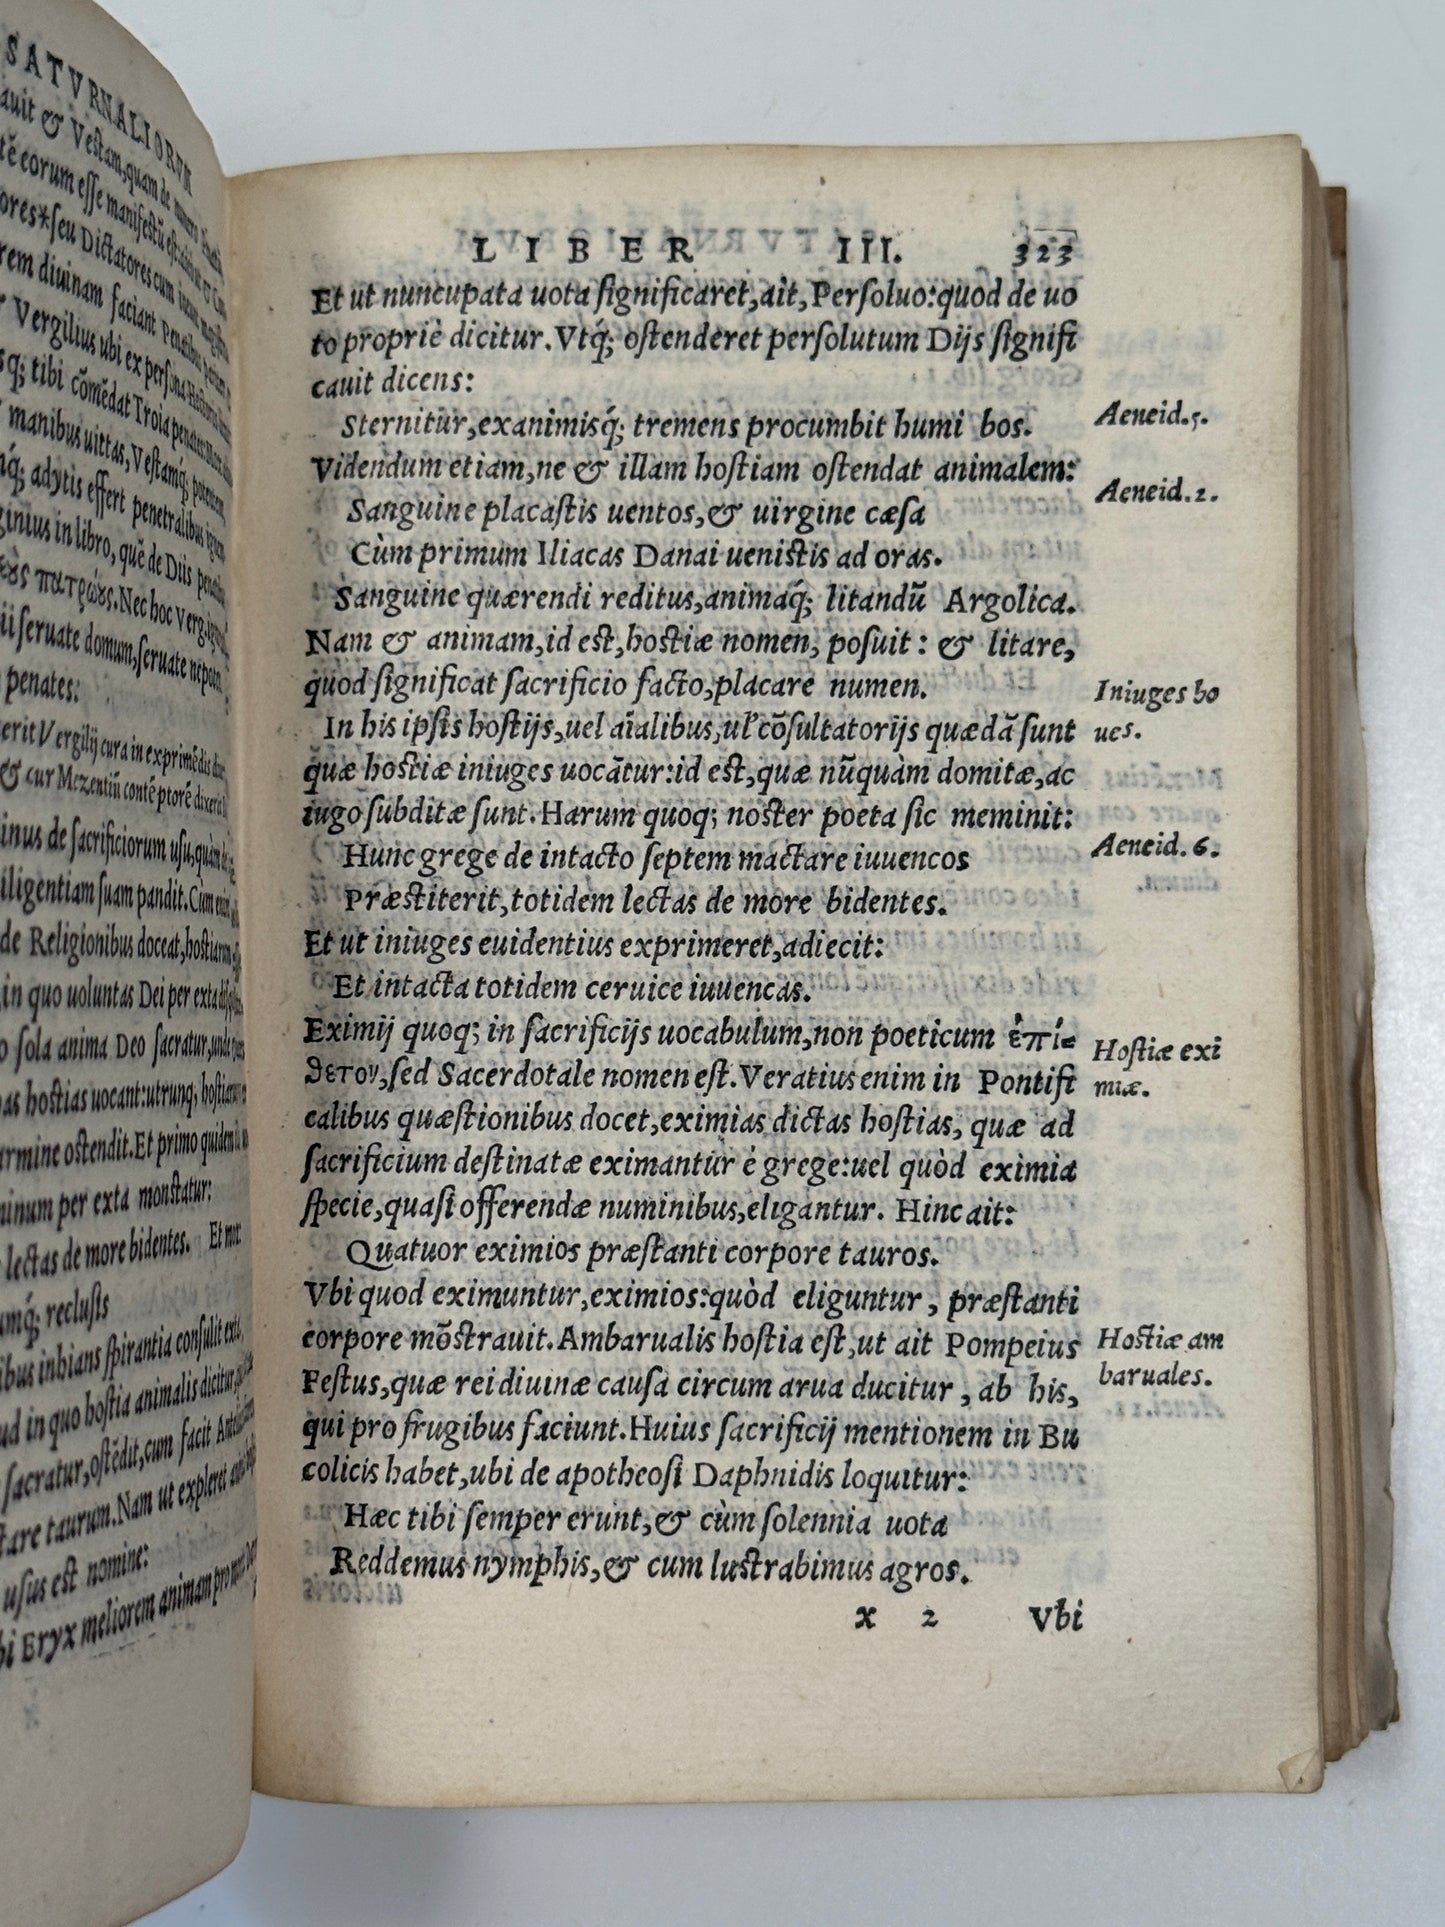 SATVRNALIORVM
auit & Vestam, quam de
eorum esse manifestũ est
ores*seu Dictatores cum
rem diuinam faciant Penatibus
Vergilius ubi ex persona
sq́; tibi cõmẽdat Troia penates
manibus uittas, Vestamq́; potentem
nq́; adytis effert penetralibus ignem
ginius in libro, quẽ de Diis
πατρῴους. Nec hoc Verg.
ii seruate domum, seruate nepotem
penates:
erit Vergilij cura in exprimẽdis
& cur Mezentiũ contẽptorẽ dixerit
inus de sacrificiorum usu, quàm
iligentiam suam pandit. Cum enim
de Religionibus doceat, hostiarum
in quo uoluntas Dei per exta
o sola anima Deo sacratur, unde
as hostias uocant: utrunq;
armine ostendit. Et primo quidem
inum per exta monstatur:
lectas de more bidentes. Et mox:
umq́; reclusis
ibus inhians spirantia consulit exta
ud in quo hostia animalis dicitur
sacratur, ostẽdit, cum facit
tare taurum. Nam ut expleret
usus est nomine:
bi Eryx meliorem animam pro morte
LIBER III. 323
Et ut nuncupata uota significaret, ait, Persoluo: quod de uo
to propriè dicitur. Vtq́; ostenderet persolutum Dijs signifi
cauit dicens:
Sternitur, exanimisq́; tremens procumbit humi bos.
Aeneid.5.
Videndum etiam, ne & illam hostiam ostendat animalem:
Aeneid.2.
Sanguine placastis uentos, & uirgine cæsa
Cùm primum Iliacas Danai uenistis ad oras.
Sanguine quærendi reditus, animaq́; litandũ Argolica.
Nam & animam, id est, hostiæ nomen, posuit: & litare,
quod significat sacrificio facto, placare numen.
Iniuges bo
ues.
In his ipsis hostijs, uel aĩalibus, uł cõsultatorijs quædã sunt
quæ hostiæ iniuges uocãtur: id est, quæ nũquàm domitæ, ac
iugo subditæ sunt. Harum quoq; noster poeta sic meminit:
Hunc grege de intacto septem mactare iuuencos
Aeneid. 6.
Præstiterit, totidem lectas de more bidentes.
Et ut iniuges euidentius exprimeret, adiecit:
Et intacta totidem ceruice iuuencas.
Eximij quoq; in sacrificijs uocabulum, non poeticum ἐπί=
θετον, sed Sacerdotale nomen est. Veratius enim in Pontifi
Hostiæ exi
miæ.
calibus quæstionibus docet, eximias dictas hostias, quæ ad
sacrificium destinatæ eximantur è grege: uel quòd eximia
specie, quasi offerendæ numinibus, eligantur. Hinc ait:
Quatuor eximios præstanti corpore tauros.
Vbi quod eximuntur, eximios: quòd eliguntur, præstanti
corpore mõstrauit. Ambarualis hostia est, ut ait Pompeius
Hostiæ am
baruales.
Festus, quæ rei diuinæ causa circum arua ducitur, ab his,
qui pro frugibus faciunt. Huius sacrificij mentionem in Bu
colicis habet, ubi de apotheosi Daphnidis loquitur:
Hæc tibi semper erunt, & cùm solennia uota
Reddemus nymphis, & cum lustrabimus agros.
x 2 Vbi